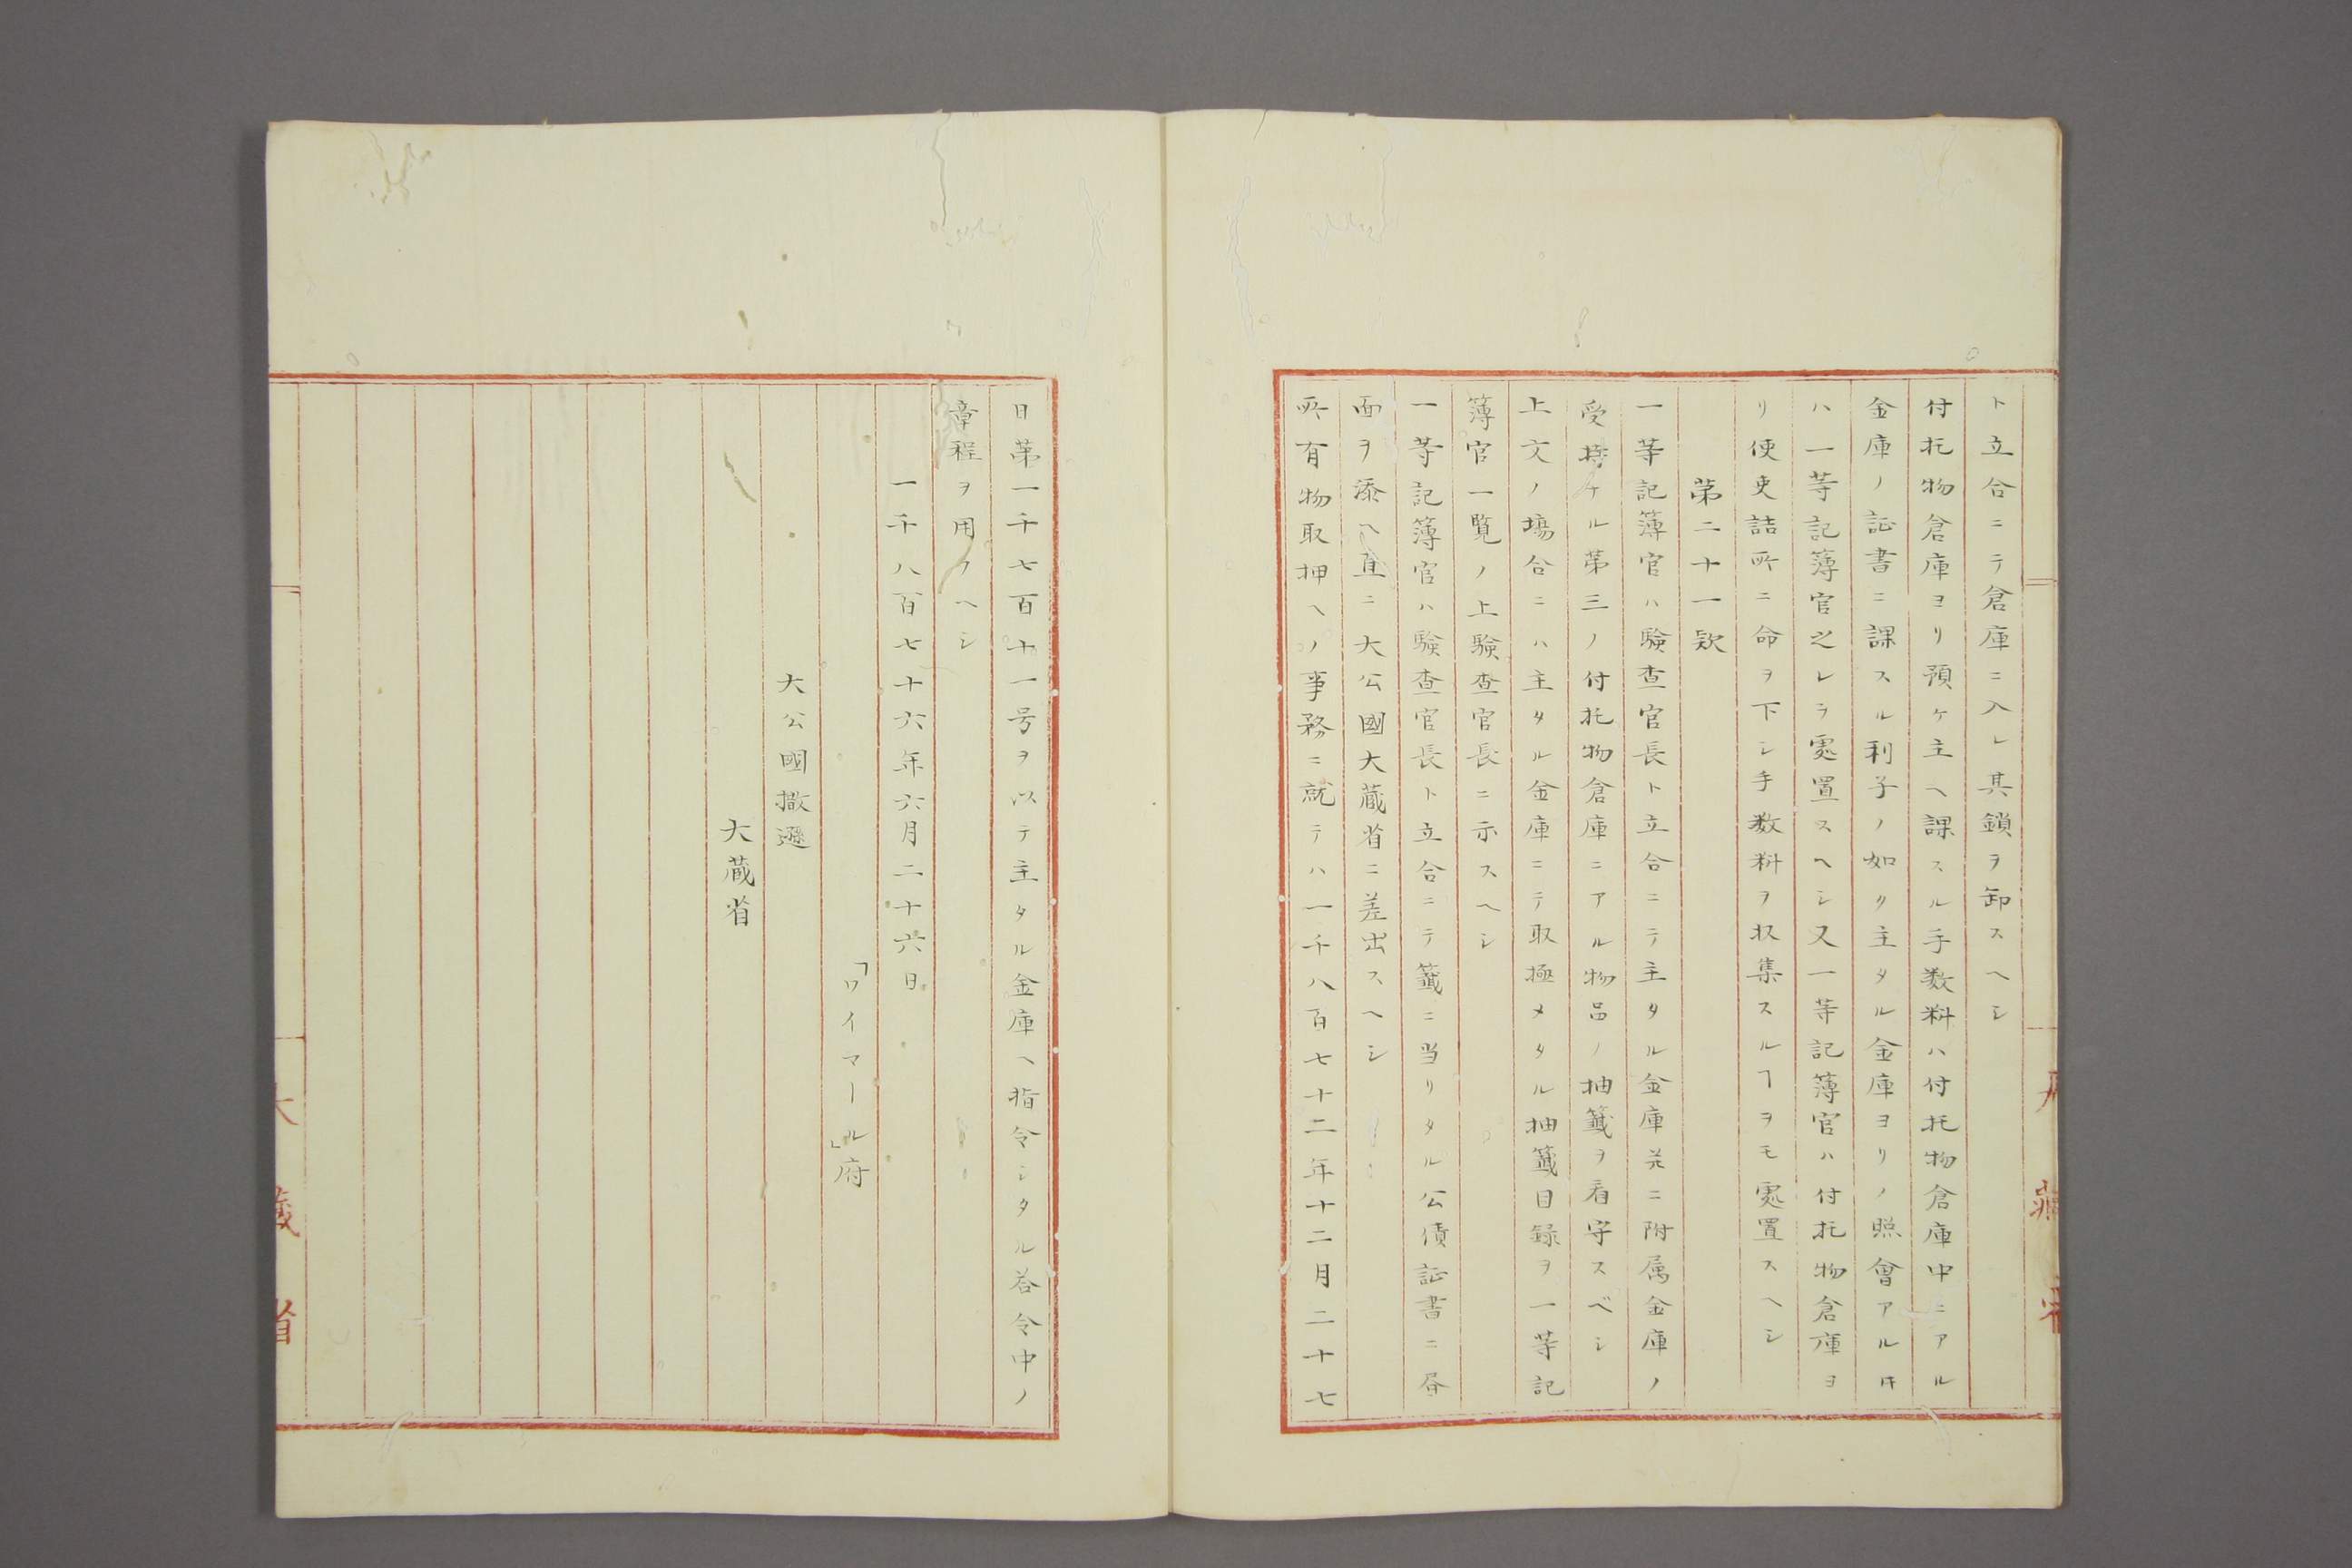 ト立合ニテ倉庫ニ入レ其鎖ヲ卸スヘシ
付托物倉庫ヨリ預ケ主ヘ課スル手数料ハ付托物倉庫中ニアル
金庫ノ証書ニ課スル利子ノ如ク主タル金庫ヨリノ照會アルキ
ハ一等記簿官之レヲ處置スヘシ又一等記簿官ハ付托物倉庫ヨ
リ使吏詰所ニ命ヲ下シ手数料ヲ収集スルヿヲモ處置スヘシ
第二十一欵
一等記簿官ハ驗查官長ト立合ニテ主タル金庫並ニ附属金庫ノ
受持ケル第三ノ付托物倉庫ニアル物品ノ抽籤ヲ看守スベシ
上文ノ塲合ニハ主タル金庫ニテ取極メタル抽籤目録ヲ一等記
簿官一覧ノ上驗查官長ニ示スヘシ
一等記簿官ハ驗查官長ト立合ニテ籤ニ当リタル公債証書ニ届
面ヲ添ヘ直ニ大公國大蔵省ニ差出スヘシ
所有物取押ヘノ事務ニ就テハ一千八百七十二年十二月二十七
日第一千七百十一号ヲ以テ主タル金庫ヘ指令シタル答令中ノ
章程ヲ用フヘシ
一千八百七十六年六月二十六日
「ワイマール」府
大公國撒遜
大蔵省
大藏省